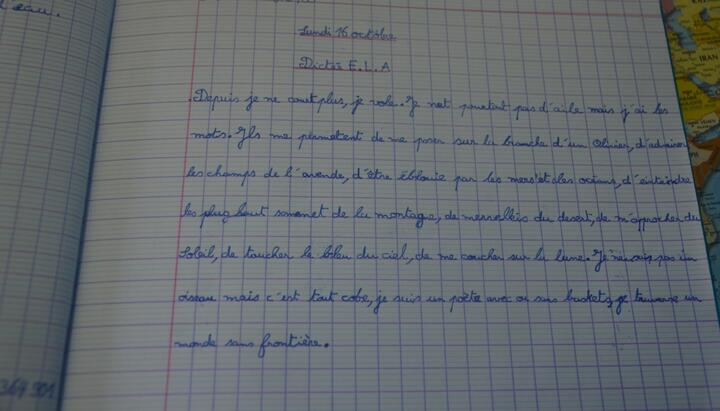 d'eau.
Lundi 16 octobre
Dictée E.L.A
Depuis je ne court plus, je vole. Je net pourtant pas d'aile mais j'ai les
mots. Ils me permetent de me poser sur la branche d'un Olivier, d'admirer
les champs de l'avende, d'être éblouie par les mers et des océans, d'einteindre
les plus haut sommet de la montagne, de merveilles du desert, de m'approcher du
Soleil, de toucher le bleu du ciel, de me coucher sur la lune. Je ne suis pas un
oiseau mais c'est tout cobe, je suis un poète avec ou sans baskets, je traverse un
monde sans frontière.
IRAN